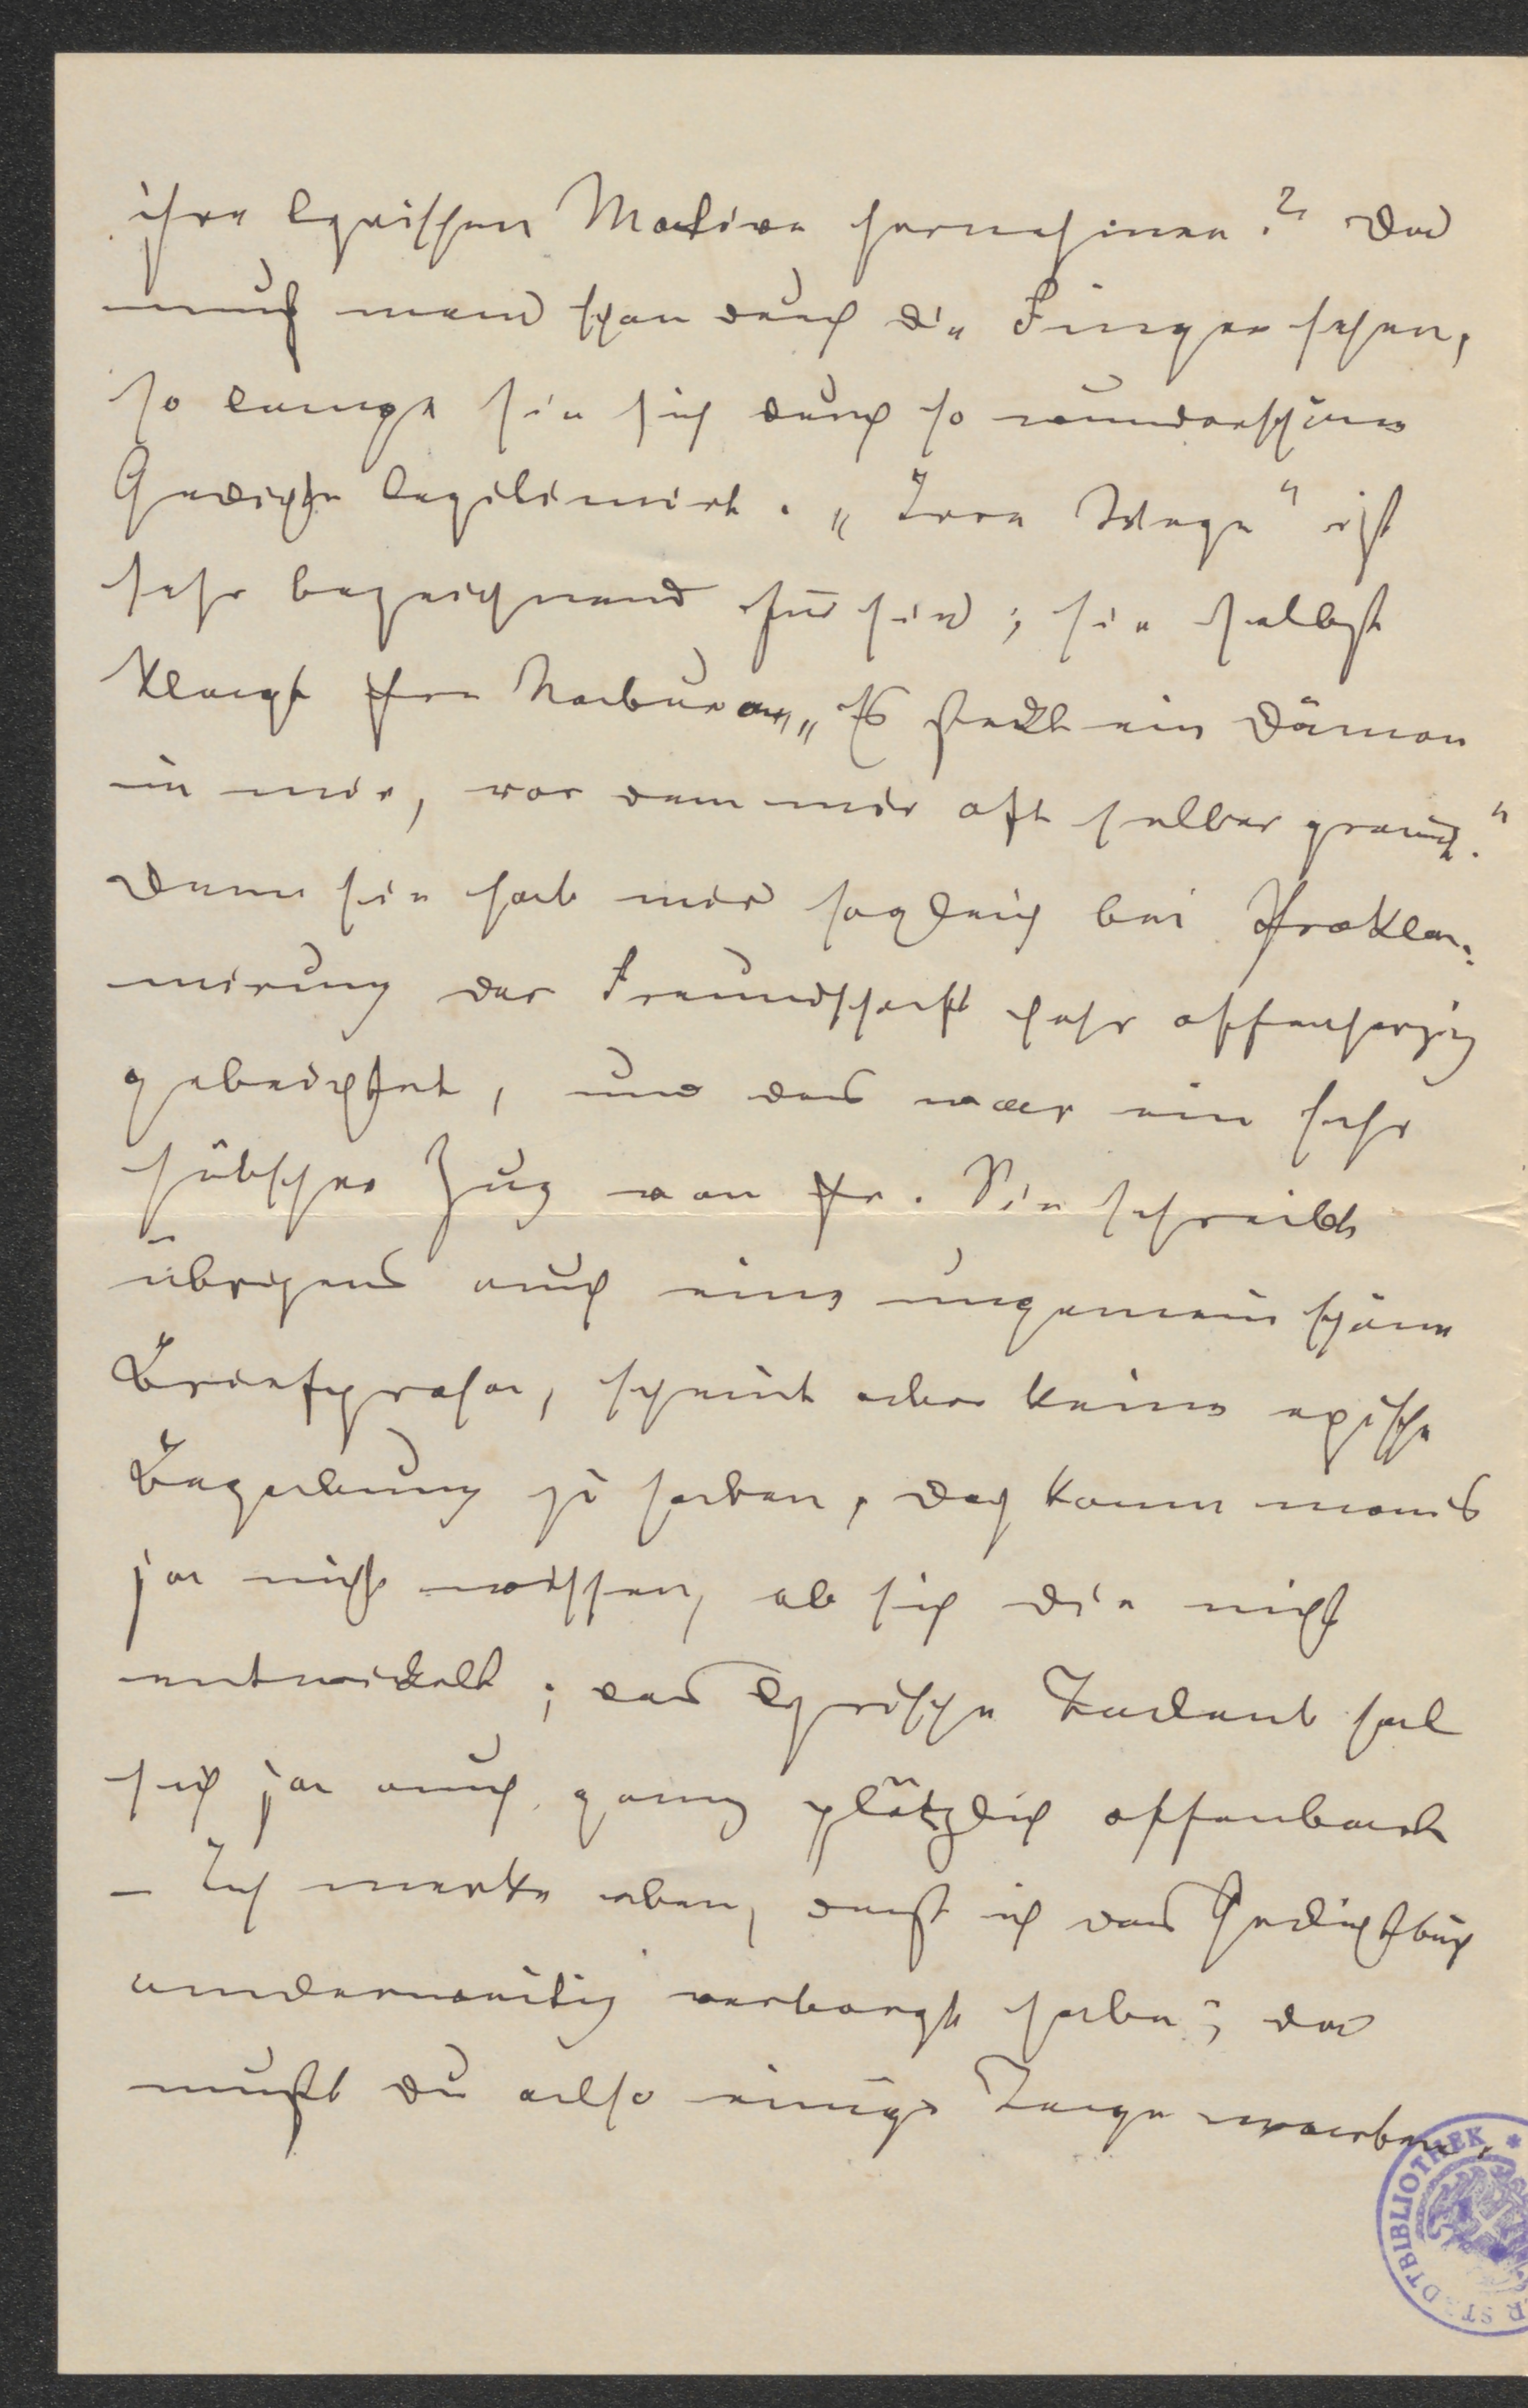 ihre lyrischen Motive hernehmen?" Da
muß man schon durch die Finger sehen,
so lange sie sich durch so wunderschöne
Gedichte legitimirt. „Irre Wege" ist
sehr bezeichnend für sie; sie selbst
klagt ihre Natur an, „Es steckt ein Dämon
in mir, vor dem mir oft selber graut."
Denn sie hat mir sogleich bei Prokla-
mirung der Freundschaft sehr offenherzig
gebeichtet, und das war ein sehr
hübscher Zug von ihr. Sie schreibt
übrigens auch eine ungemein schöne
Briefprosa, scheint aber keine epische
Begabung zu haben, doch kann man's
ja nicht wissen, ob sich die nicht
entwickelt; das lyrische Talent hat
sich ja auch ganz plötzlich offenbart
– Ich merke eben, daß ich das Gedichtbuch
anderweitig verborgt habe; da
mußt du also einige Tage warten.
STADTBIBLIOTHEK *